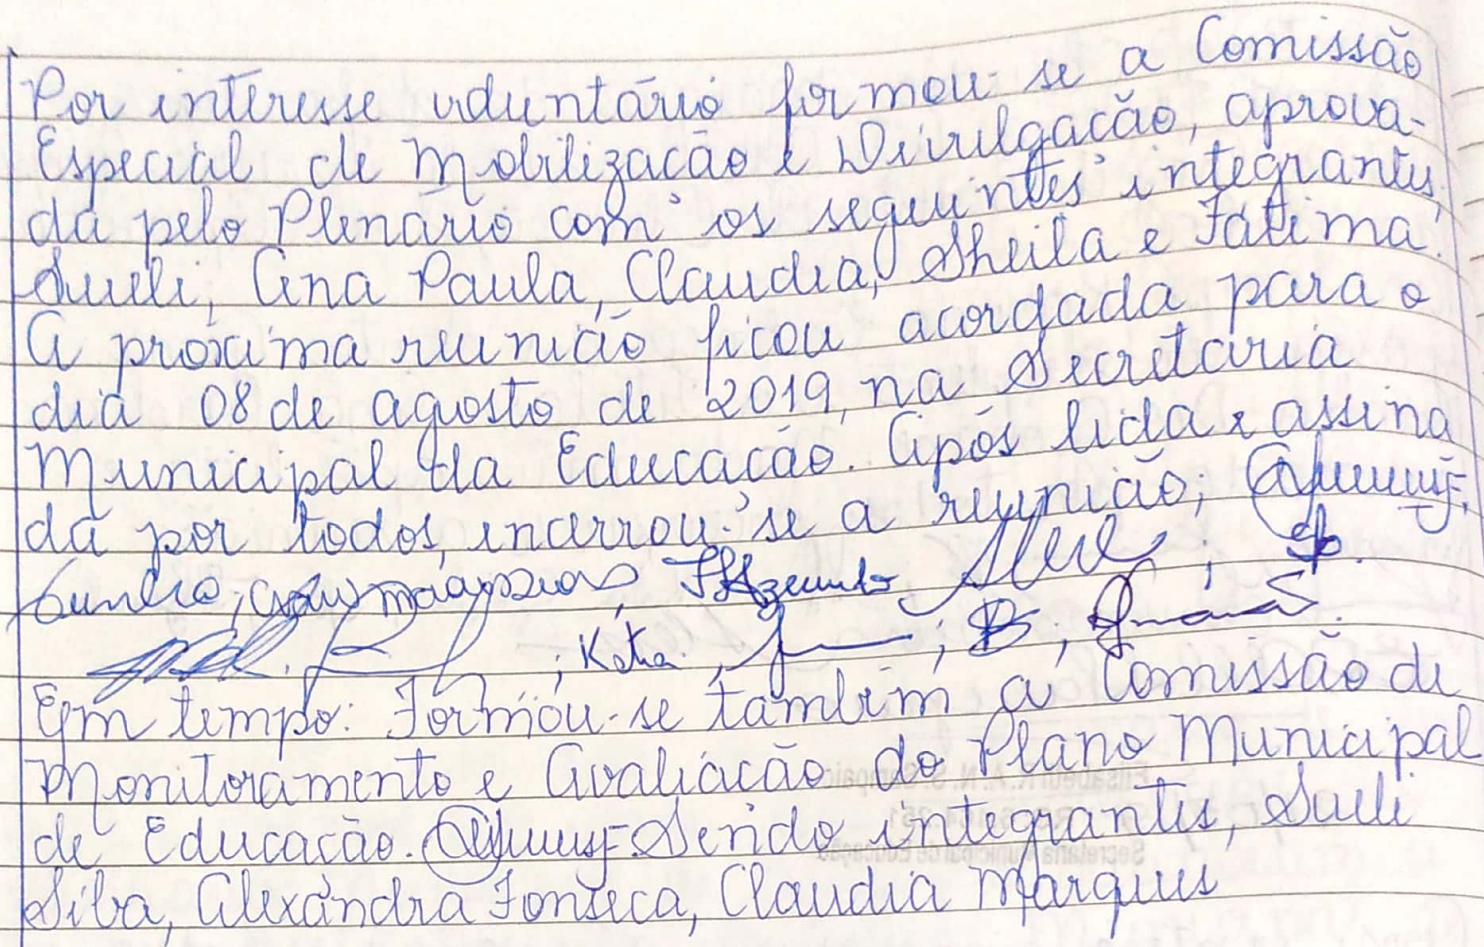 Por interesse voluntário formou-se a Comissão
Especial de Mobilização e Divulgação, aprova-
da pelo Plenário com os seguintes integrantes,
Sueli, Ana Paula, Claudia, Sheila e Fátima.
A próxima reunião ficou acordada para o
dia 08 de agosto de 2019, na Secretaria
Municipal da Educação. Após lida e assina
da por todos, incerrou-se a reunião;
Katia
Em tempo: Formou-se também a Comissão de
Monitoramento e Avaliação do Plano Municipal
de Educação. Sendo integrantes, Sueli
Silva, Alexandra Fonseca, Claudia Marques